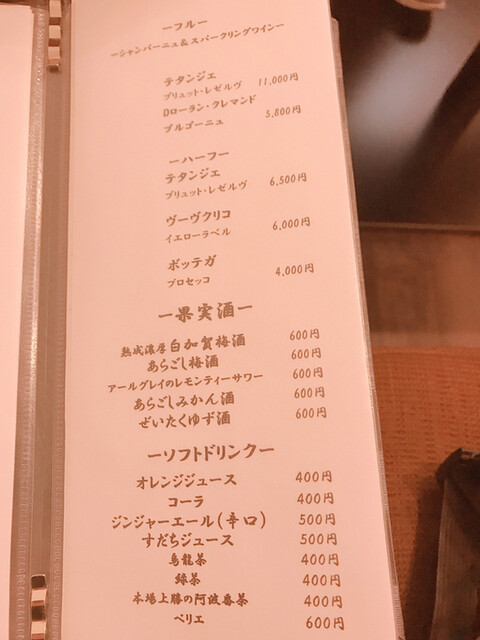 ーフルー
ーシャンパーニュ&スパークリングワインー
テタンジェ
ブリュット・レゼルヴ 11,000円
Dローラン・クレマンド
ブルゴーニュ 5,800円
ーハーフー
テタンジェ
ブリュット・レゼルヴ 6,500円
ヴーヴクリコ
イエローラベル 6,000円
ボッテガ
プロセッコ 4,000円
ー果実酒ー
熟成濃厚白加賀梅酒 600円
あらごし梅酒 600円
アールグレイのレモンティーサワー 600円
あらごしみかん酒 600円
ぜいたくゆず酒 600円
ーソフトドリンクー
オレンジジュース 400円
コーラ 400円
ジンジャーエール(辛口) 500円
すだちジュース 500円
烏龍茶 400円
緑茶 400円
本場上勝の阿波番茶 400円
ペリエ 600円